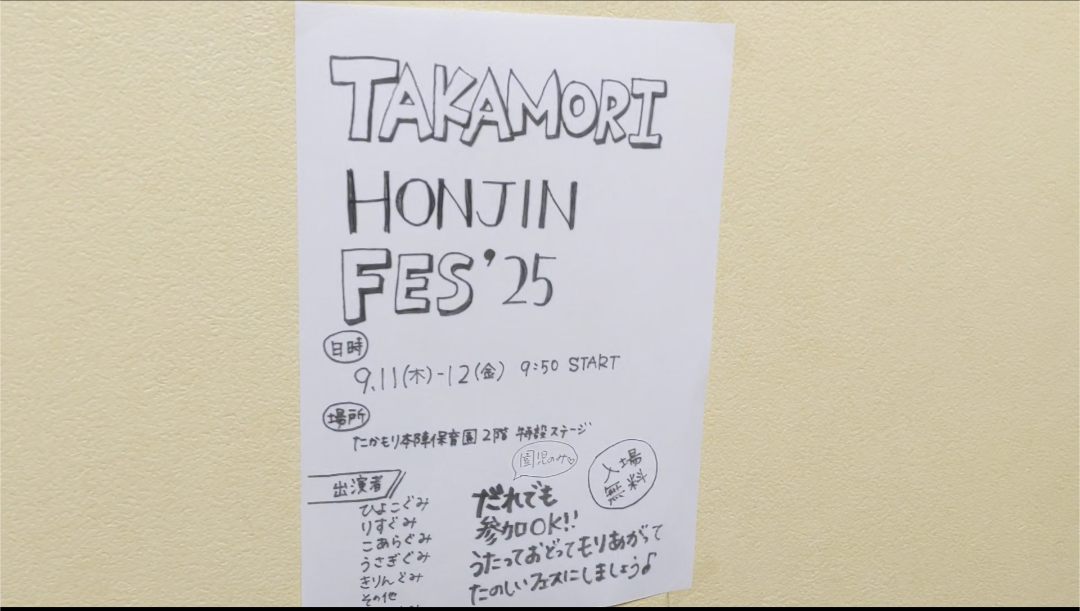 TAKAMORI
HONJIN
FES'25
日時
9.11(木)-12(金) 9:50 START
場所
たかもり本陣保育園 2階 特設ステージ
園児のみ♡
入場
無料
出演者
ひよこぐみ
りすぐみ
こあらぐみ
うさぎぐみ
きりんぐみ
その他
だれでも
参加OK!!
うたっておどってもりあがって
たのしいフェスにしましょう♪